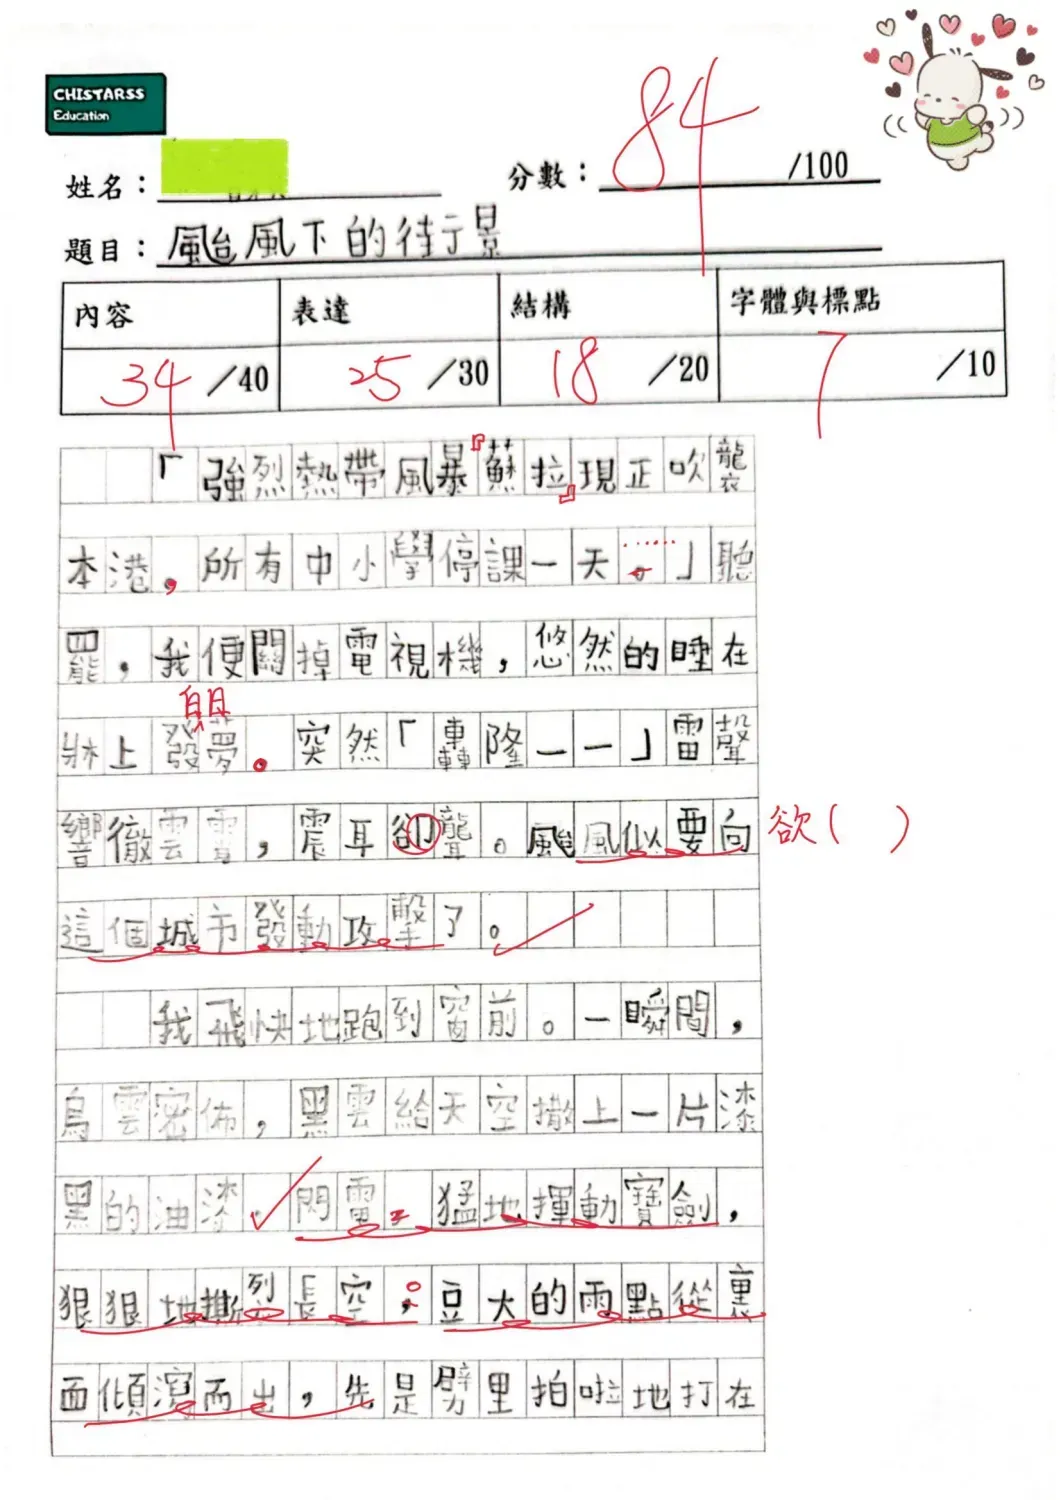 CHISTARSS
Education
姓名：
分數： 84 /100
題目：颱風下的街景
內容 表達 結構 字體與標點
34 /40 25 /30 18 /20 7 /10
「強烈熱帶風暴『蘇拉』現正吹襲
本港，所有中小學停課一天……。」聽
罷，我便關掉電視機，悠然的睡在
牀上發夢。突然「轟隆——」雷聲
響徹雲霄，震耳卻聾。颱風似要向
欲（ ）
這個城市發動攻擊了。
我飛快地跑到窗前。一瞬間，
烏雲密佈，黑雲給天空撒上一片漆
黑的油漆。閃電，猛地揮動寶劍，
狠狠地撕烈長空。豆大的雨點從裏
面傾瀉而出，先是劈里拍啦地打在